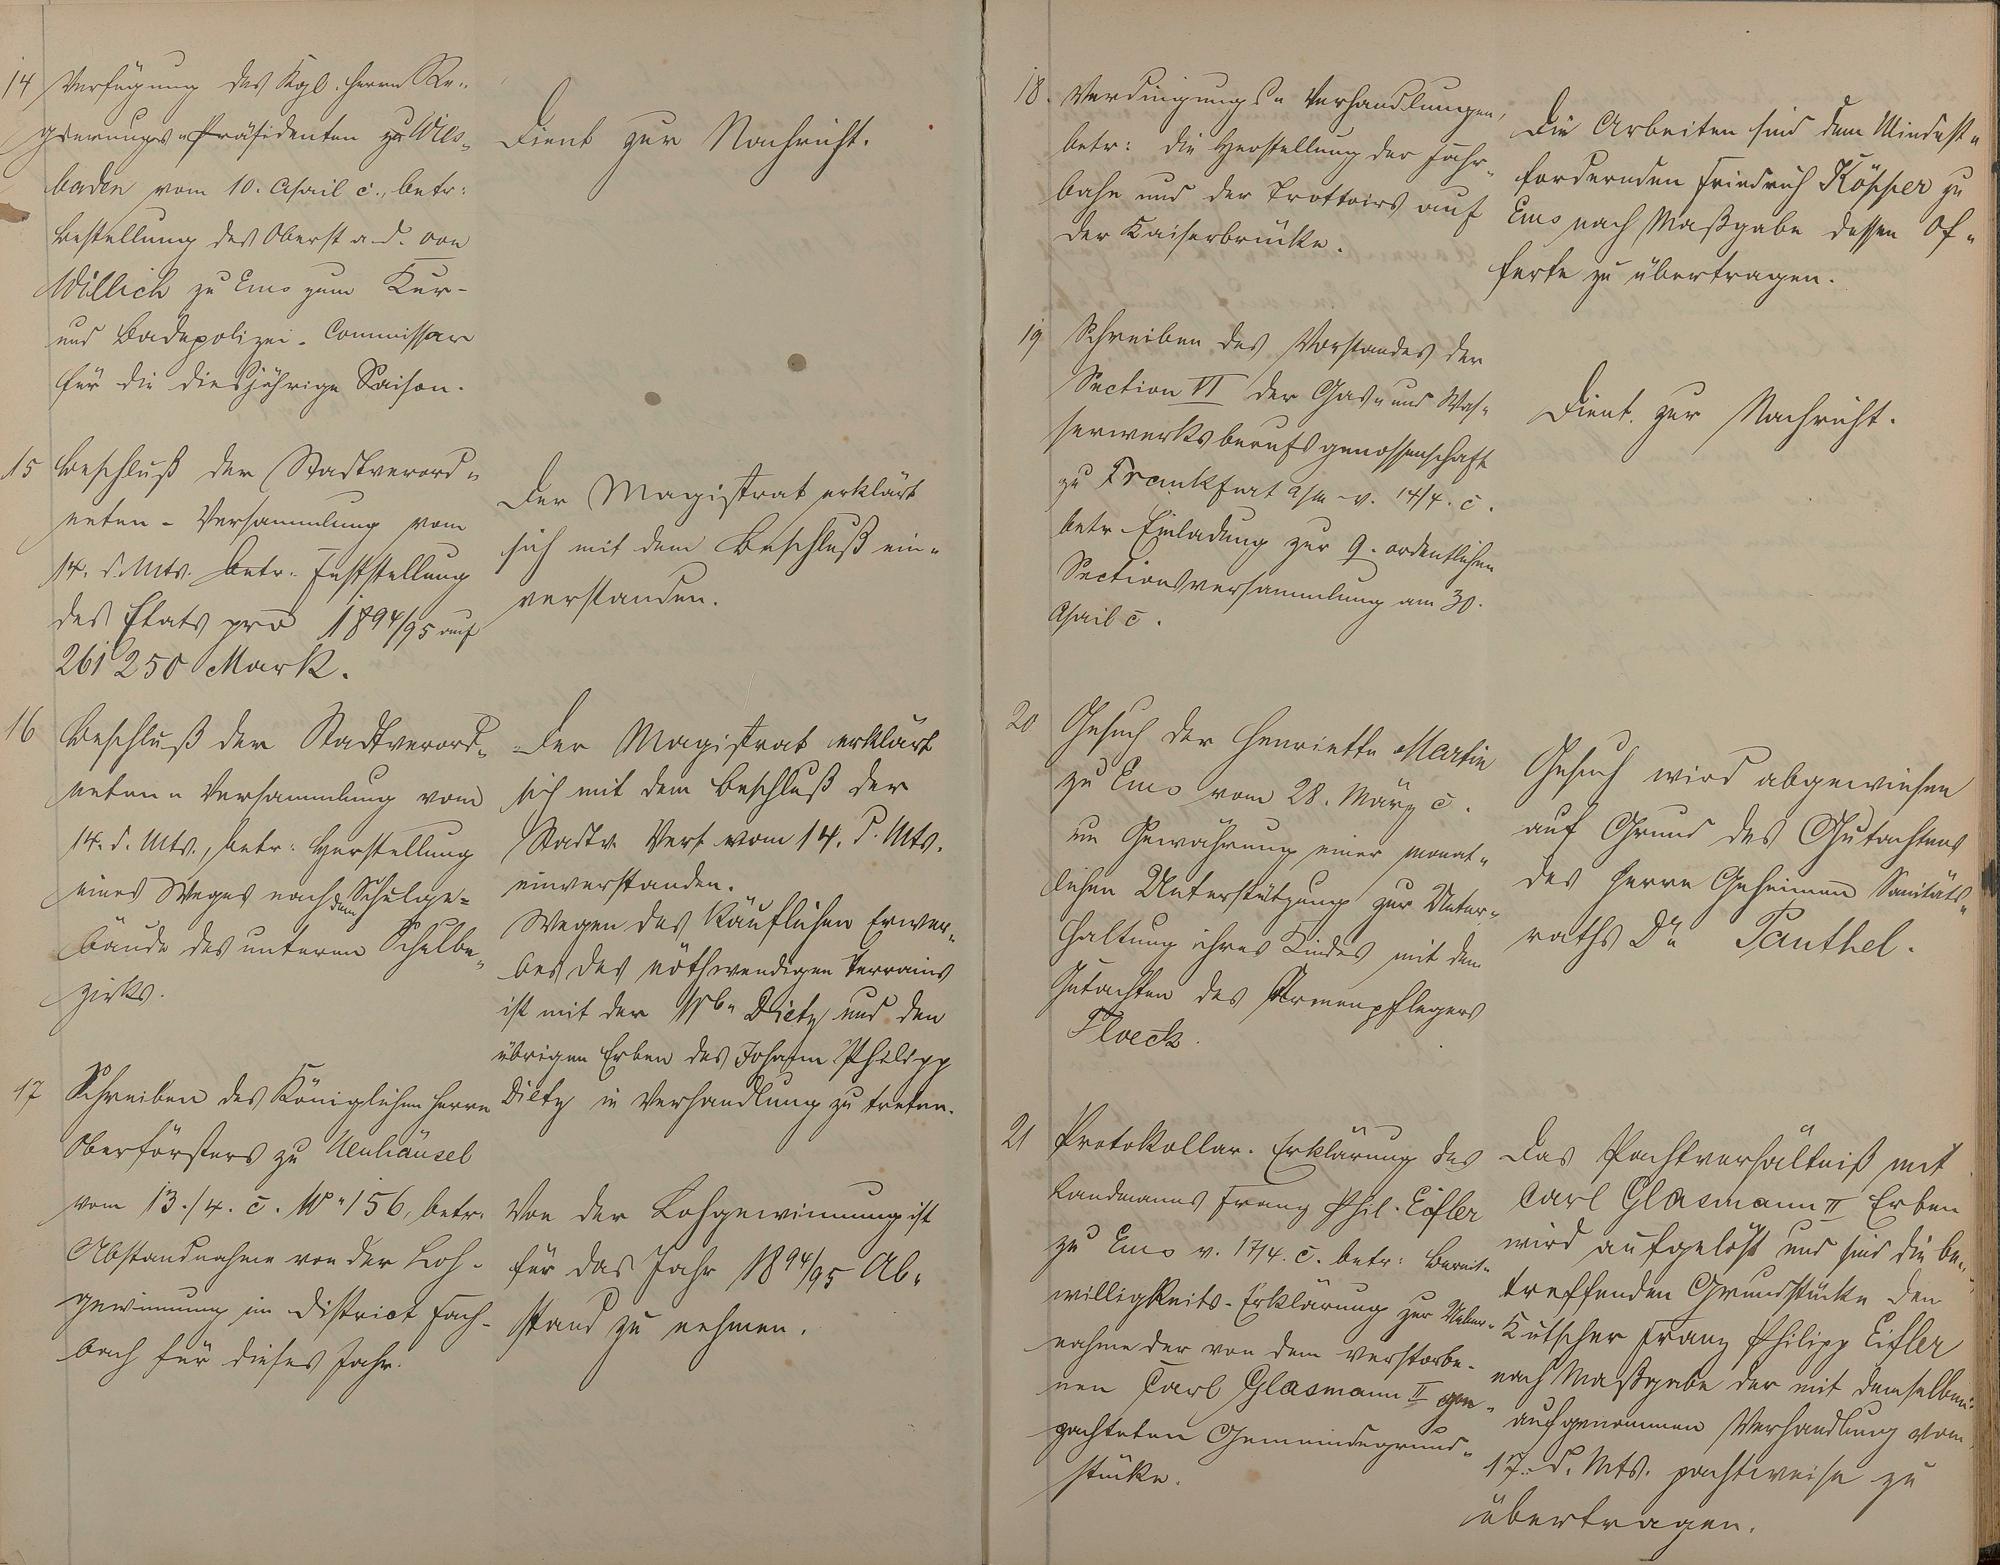 14 Verfügung des Kgl. Herrn Re-
gierungs-Präsidenten zu Wies-
baden vom 10. April c., betr:
Bestellung des Oberst a. D. von
Willich zu Ems zum Kur-
und Badepolizei-Commissar
für die diesjährige Saison.
Dient zur Nachricht.
15 Beschluß der Stadtverord-
neten-Versammlung vom
14. d. Mts. betr. Feststellung
des Etats pro 1894/95 auf
261 250 Mark.
Der Magistrat erklärt
sich mit dem Beschluß ein-
verstanden.
16 Beschluß der Stadtverord-
neten-Versammlung vom
14. d. Mts., betr: Herstellung
eines Weges nach dem Schulge-
bäude des unteren Schulbe-
zirks.
Der Magistrat erklärt
sich mit dem Beschluß der
Stadtv. Vers. vom 14. d. Mts.
einverstanden.
Wegen des käuflichen Erwer-
bes des nöthwendigen Terrains
ist mit der Wb. Dietz und den
übrigen Erben des Johann Philipp
Dietz in Verhandlung zu treten.
17 Schreiben des Königlichen Herrn
Oberförsters zu Neuhäusel
vom 13./4. c. No 156, betr.
Abstandnahme von der Loh-
gewinnung im District Fach-
bach für dieses Jahr.
Von der Lohgewinnung ist
für das Jahr 1894/95 Ab-
stand zu nehmen.
18. Verdingungs-Verhandlungen,
betr: die Herstellung der Fahr-
bahn und der Trottoirs auf
der Kaiserbrücke.
Die Arbeiten sind dem Mindest-
fordernden Friedrich Köpper zu
Ems nach Maßgabe dessen Of-
ferte zu übertragen.
19 Schreiben des Vorstandes der
Section VI der Gas- und Was-
serwerksberufsgenossenschaft
zu Frankfurt a/M v. 14/4. c.
betr. Einladung zur 9. ordentlichen
Sectionsversammlung am 30.
April c.
Dient zur Nachricht.
20 Gesuch der Henriette Martin
zu Ems vom 28. März c.
um Gewährung einer monat-
lichen Unterstützung zur Unter-
haltung ihres Kindes mit dem
Gutachten des Armenpflegers
Floeck.
Gesuch wird abgewiesen
auf Grund des Gutachtens
des Herrn Geheimen Sanitäts-
raths Dr. Panthel.
21 Protokollar. Erklärung des
Landmanns Franz Phil. Eifler
zu Ems v. 17/4. c. betr: Bereit-
willigkeits-Erklärung zur Ueber-
nahme der von dem verstorbe-
nen Carl Glasmann II ge-
pachteten Gemeindegrund-
stücke.
Das Pachtverhältniß mit
Carl Glasmann II Erben
wird aufgelöst und sind die be-
treffenden Grundstücke den
Kutscher Franz Philipp Eifler
nach Maßgabe der mit demselben
aufgenommen Verhandlung vom
17. d. Mts. pachtweise zu
übertragen.